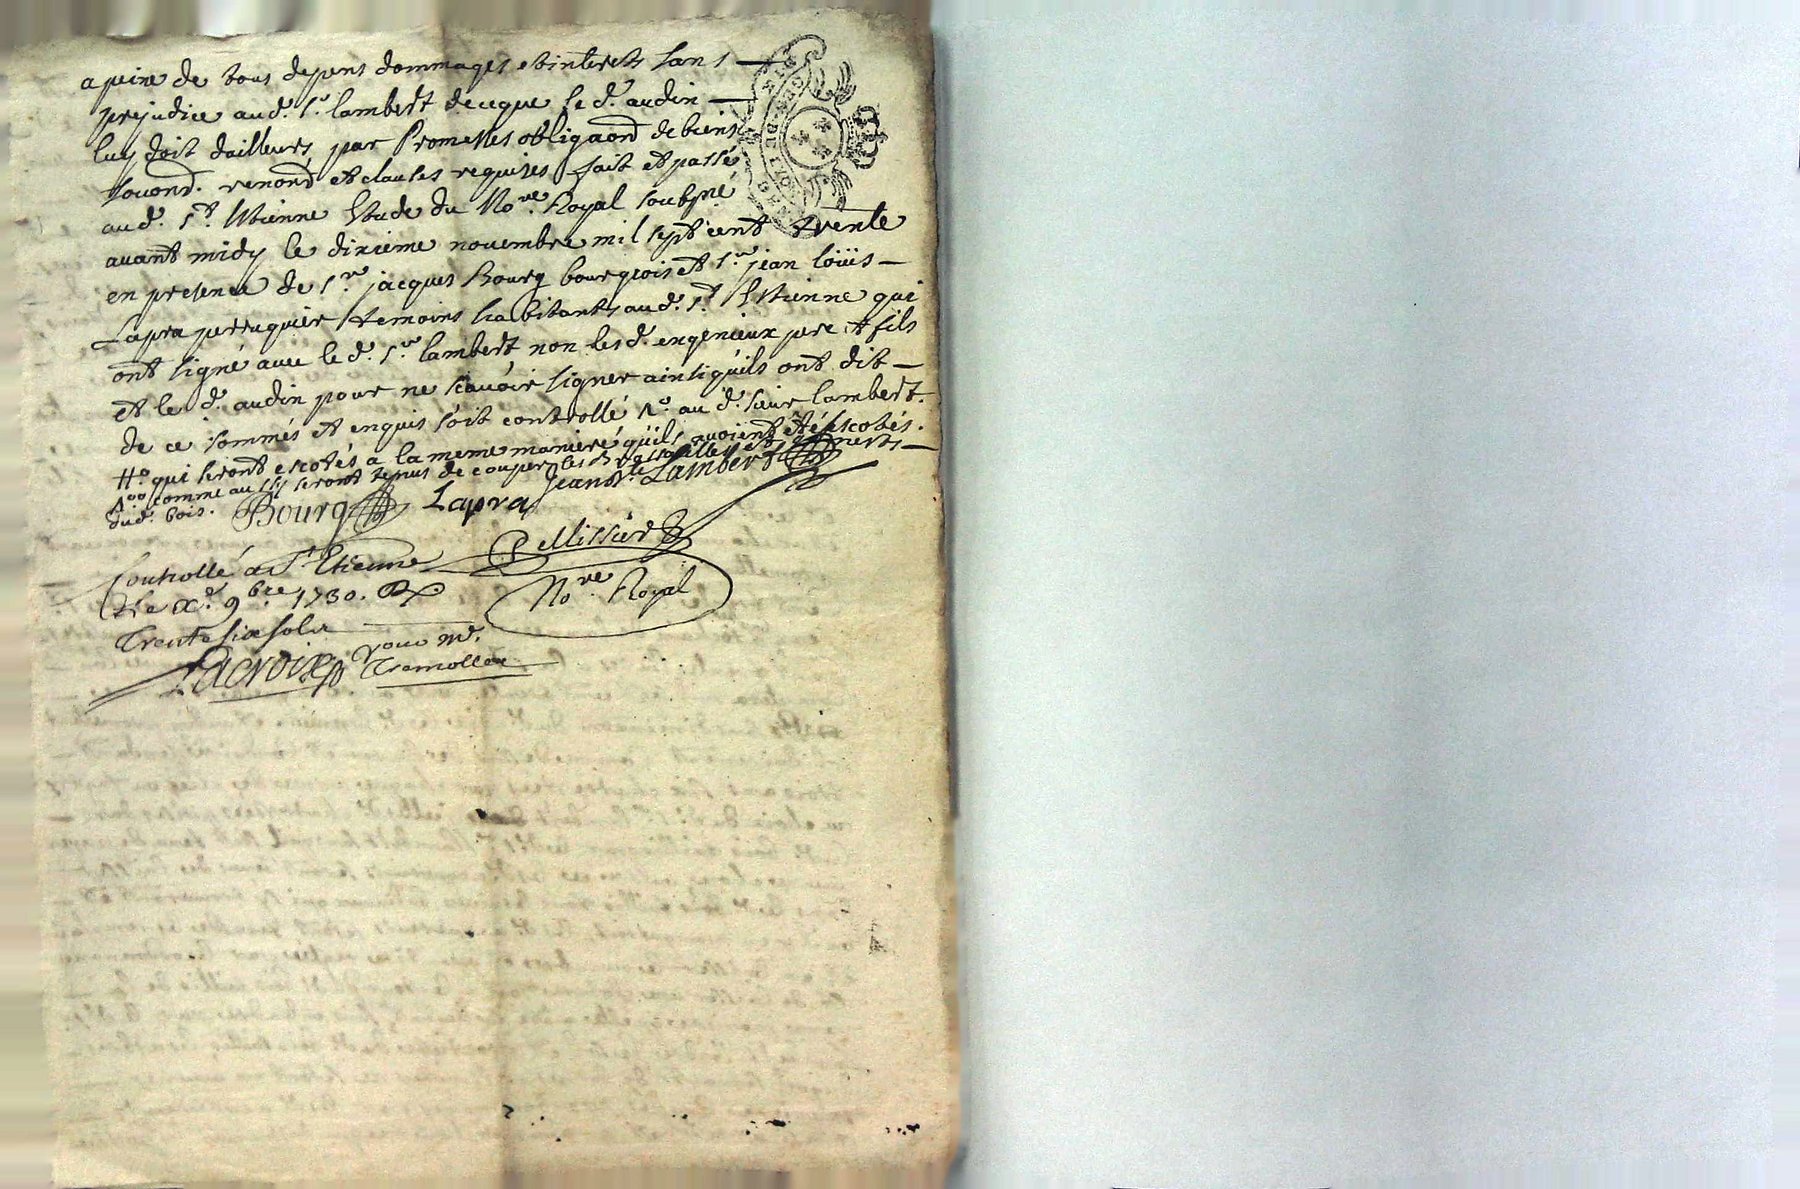 a peine de tous depens dommages et interets sans —
prejudice aud. Sr. lambert de ce que le d. audin —
luy doit dailleurs par Promesses obligaond de biens
soumd. renond et clauses requises fait et passé
aud. St. Estienne Etude du Nore. Royal soubsné
avant midy le dixieme novembre mil sept cent trente
en presence de Sr. jacques Bourg bourgeois et Sr. jean loüis —
Lapra perruquier temoins habitants aud. St. Estienne qui
ont signé avec le d. Sr. lambert non les d. engenieux pere et fils
et le d. audin pour ne scavoir signer ainsi quils ont dit —
de ce sommés et enquis soit controllé ro. au d. sieur lambert.
Ho. qui seront escotés a la meme maniere quils avoient été escotés.
Aoo comme aussy seront tenus de couper les
dud. bois. Bourg Lapra Lambert
Pellissier
Controllé a St Etienne
Le Xe. 9bre 1730. Rx
Nore. Royal
Trente six sols
pour mr.
Lacroix Tremollet